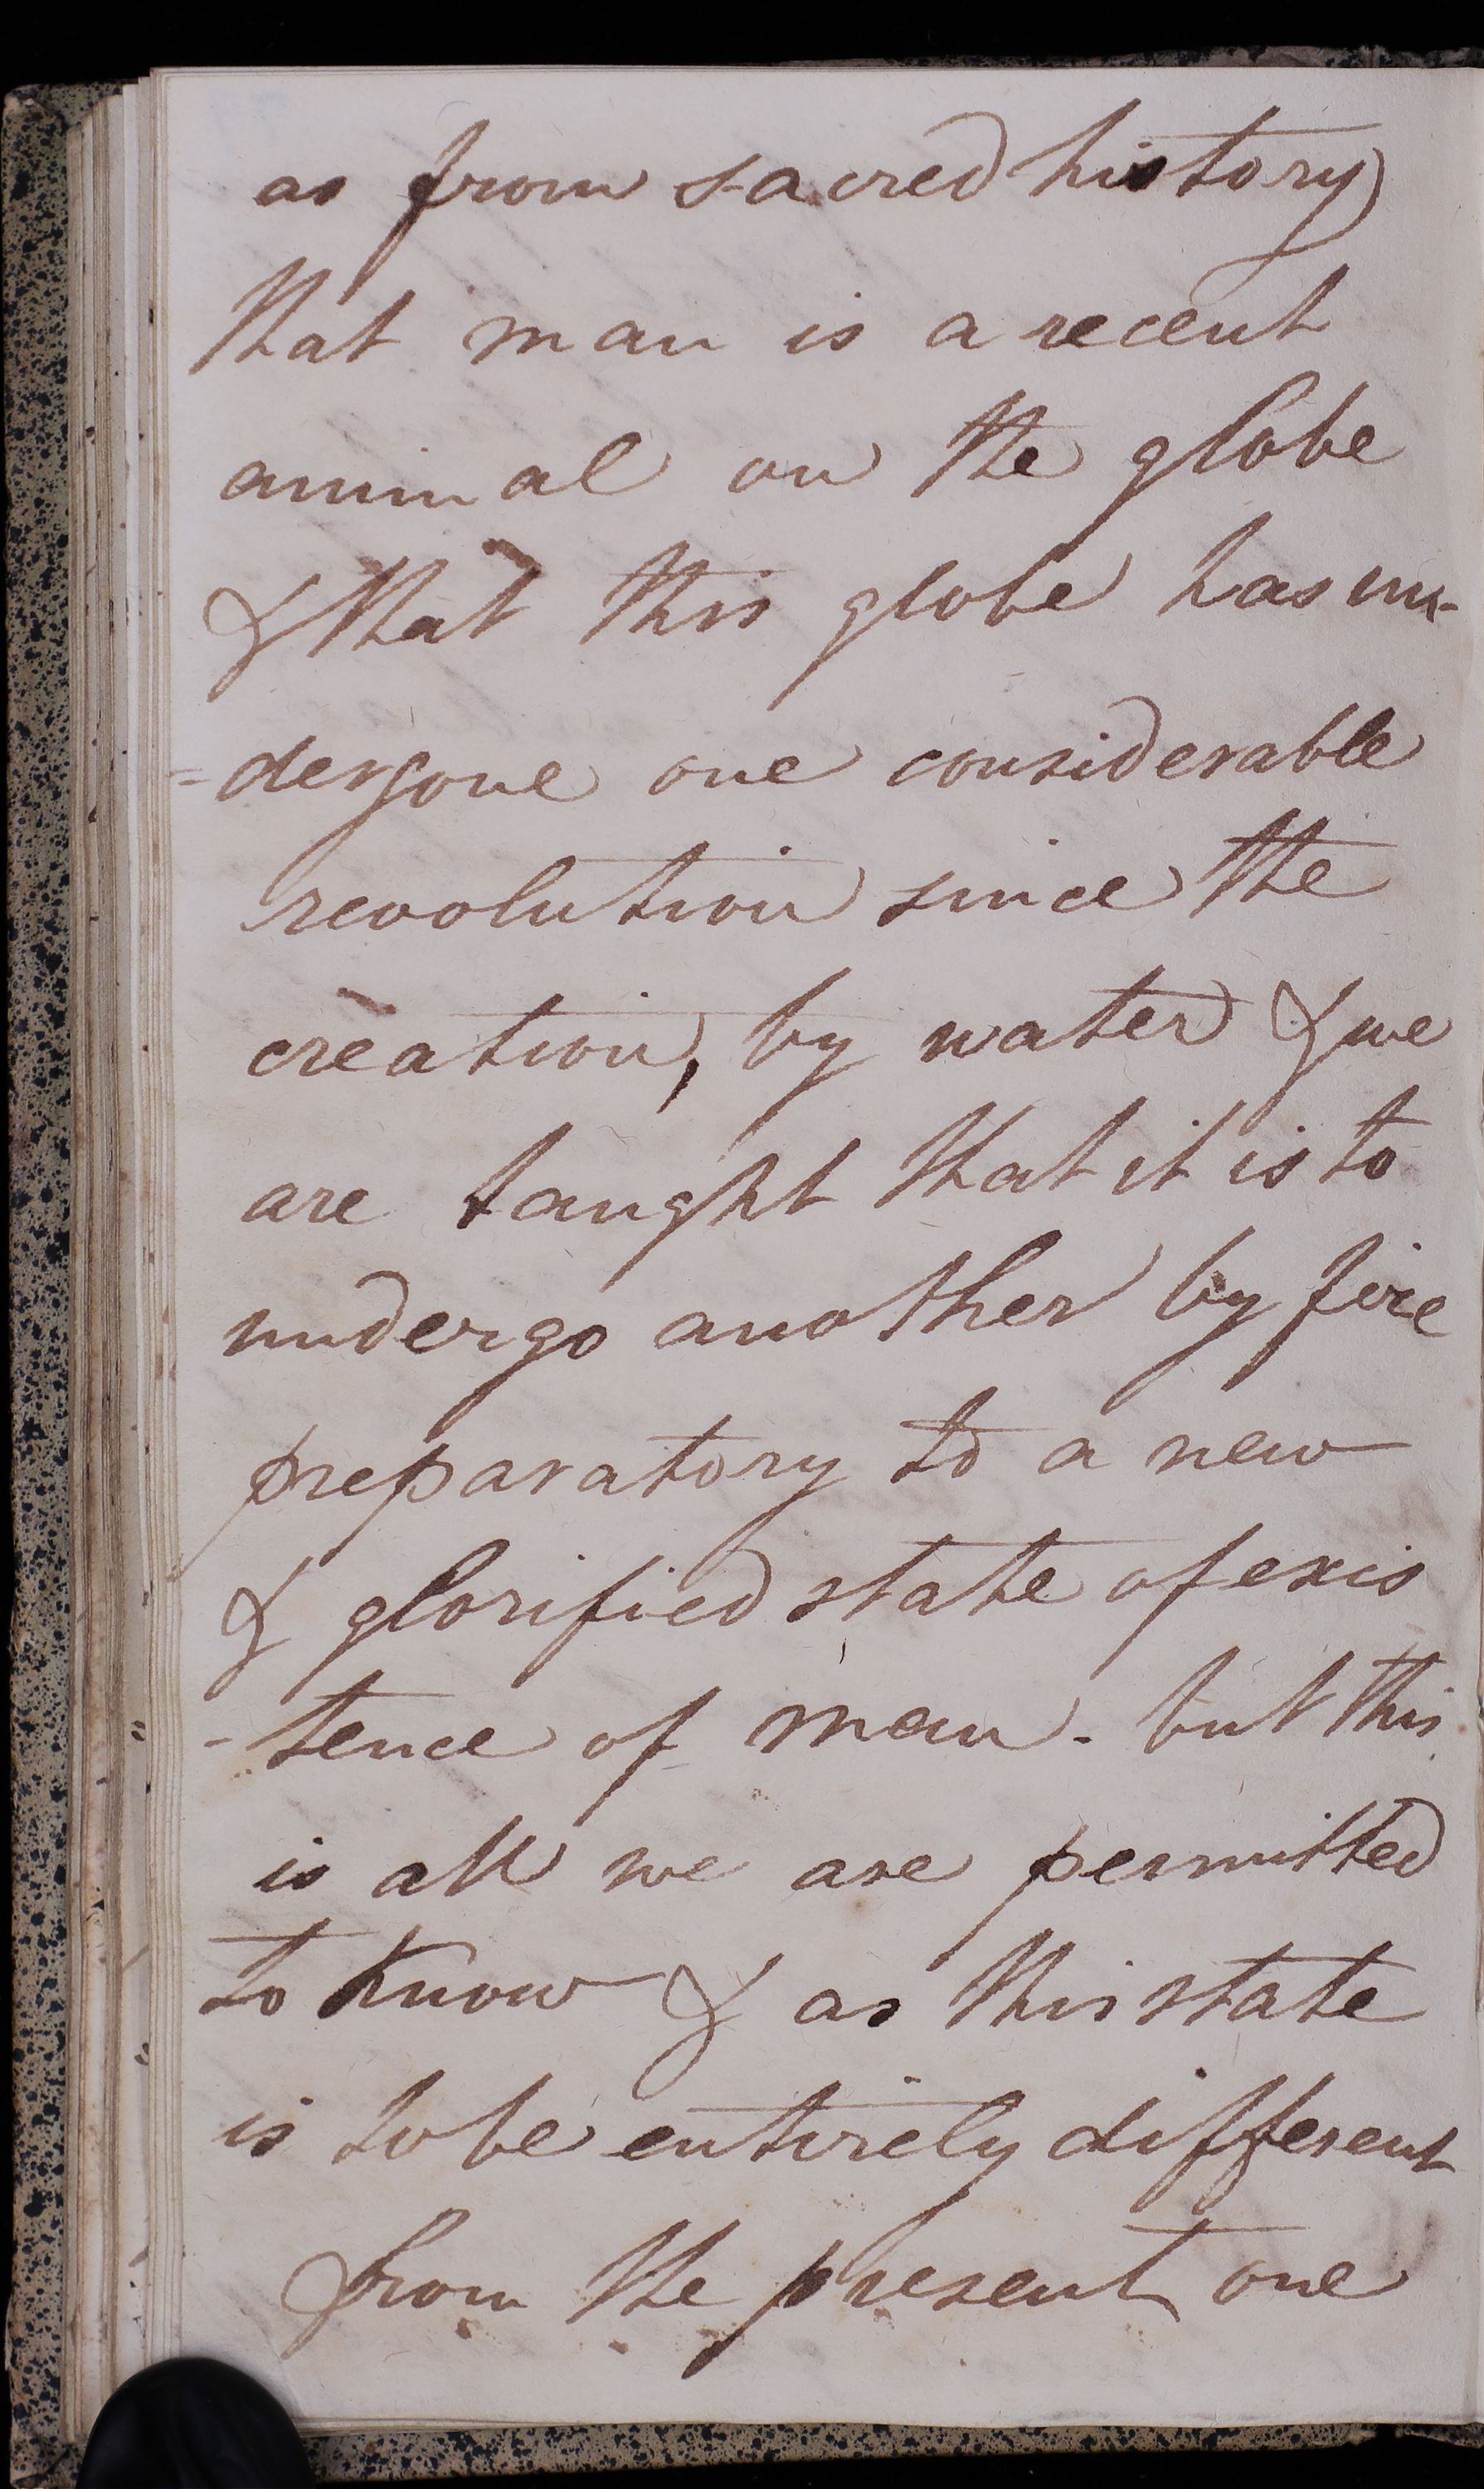 as from sacred history
that man is a recent
animal on the globe
& that this globe has un-
-dergone one considerable
revolution since the
creation, by water & we
are taught that it is to
undergo another by fire
preparatory to a new
& glorified state of exis
-tence of man. but this
is all we are permitted
to know & as this state
is to be entirely different
from the present one